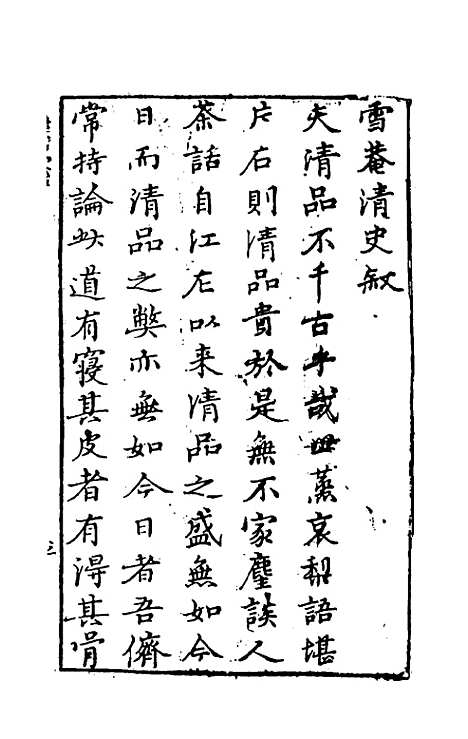 雪菴清史叙
夫清品不千古乎哉世蒸哀梨語堪
片石則清品貴於是無不家麈談人
茶話自江左以来清品之盛無如今
日而清品之獘亦無如今日者吾儕
常持論此道有寝其皮者有淂其骨